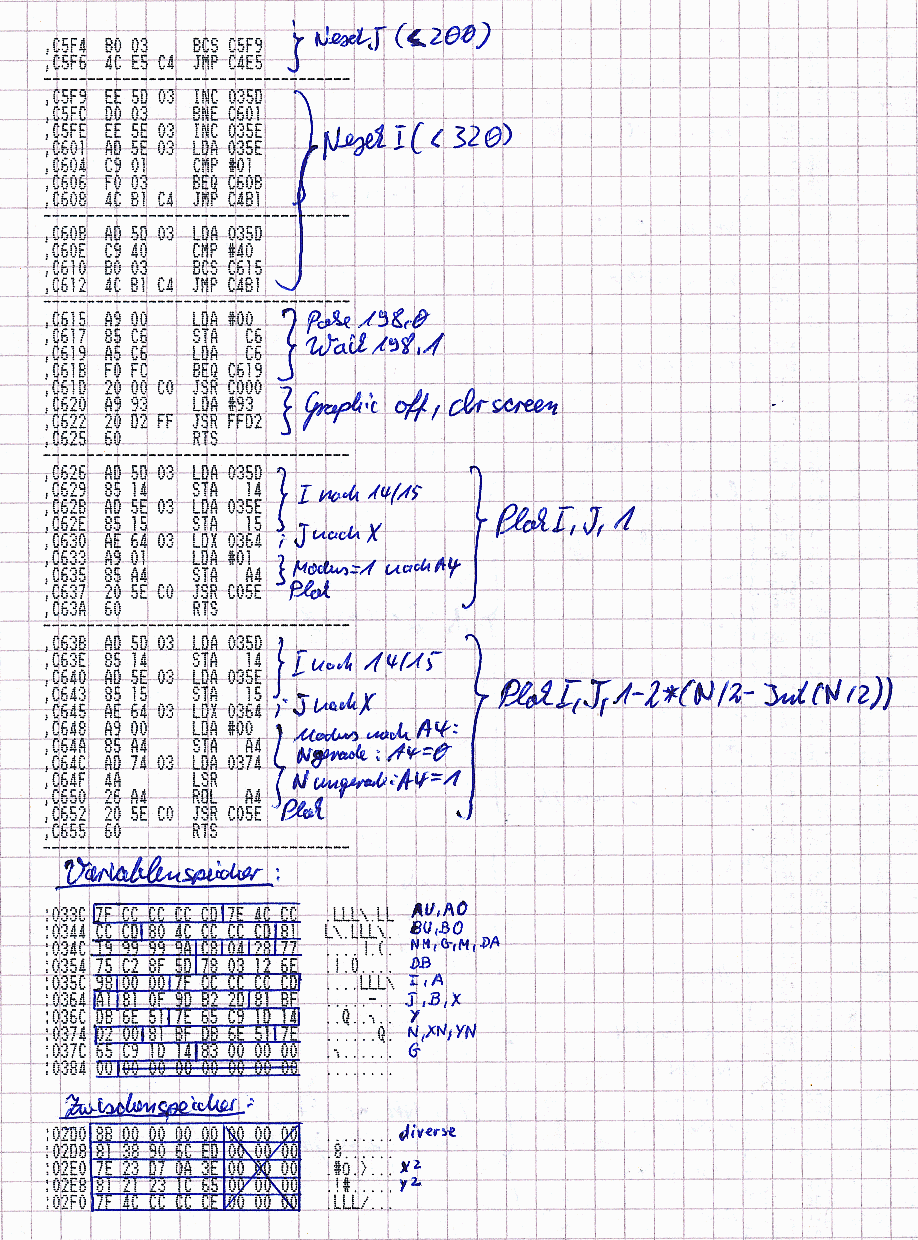 ,C5F4 B0 03 BCS C5F9 Next J (<200)
,C5F6 4C E5 C4 JMP C4E5
,C5F9 EE 5D 03 INC 035D
,C5FC D0 03 BNE C601
,C5FE EE 5E 03 INC 035E
,C601 AD 5E 03 LDA 035E Next I (<320)
,C604 C9 01 CMP #01
,C606 F0 03 BEQ C60B
,C608 4C B1 C4 JMP C4B1
,C60B AD 5D 03 LDA 035D
,C60E C9 40 CMP #40
,C610 B0 03 BCS C615
,C612 4C B1 C4 JMP C4B1
,C615 A9 00 LDA #00 Poke 198,0
,C617 85 C6 STA C6 Wait 198,1
,C619 A5 C6 LDA C6
,C61B F0 FC BEQ C619
,C61D 20 00 C0 JSR C000
,C620 A9 93 LDA #93 Graphic off, clr screen
,C622 20 D2 FF JSR FFD2
,C625 60 RTS
,C626 AD 5D 03 LDA 035D
,C629 85 14 STA 14 I nach 14/15
,C62B AD 5E 03 LDA 035E
,C62E 85 15 STA 15 Plot I, J, 1
,C630 AE 64 03 LDX 0364 ; J nach X
,C633 A9 01 LDA #01 Modus=1 nach A4
,C635 85 A4 STA A4
,C637 20 5E C0 JSR C05E Plot
,C63A 60 RTS
,C63B AD 5D 03 LDA 035D
,C63E 85 14 STA 14 I nach 14/15
,C640 AD 5E 03 LDA 035E
,C643 85 15 STA 15 Plot I, J, 1-2*(N/2-Int(N/2))
,C645 AE 64 03 LDX 0364 ; J nach X
,C648 A9 00 LDA #00 Modus nach A4:
,C64A 85 A4 STA A4 N gerade: A4=0
,C64C AD 74 03 LDA 0374
,C64F 4A LSR N ungerade: A4=1
,C650 26 A4 ROL A4
,C652 20 5E C0 JSR C05E Plot
,C655 60 RTS
Variablenspeicher:
:033C 7F CC CC CC CD 7E 4C CC .LLL\.LL AU, AO
:0344 CC CD 80 4C CC CC CD 81 L\.LLL\. BU, BO
:034C 19 99 99 9A C8 04 28 77 NM, G, M, DA
:0354 75 C2 8F 5D 78 03 12 6E DB
:035C 98 00 00 7F CC CC CC CD ....LLL\ I, A
:0364 A1 81 0F 9D B2 2D 81 BF J, B, X
:036C DB 6E 51 7E 65 C9 1D 14 Y
:0374 D2 00 81 BF DB 6E 51 7E N, XN, YN
:037C 65 C9 1D 14 83 00 00 00 G
:0384 00 00 00 00 00 00 00 00 ........
Zwischenspeicher:
:02D0 8B 00 00 00 00 00 00 00 ........ diverse
:02D8 81 38 90 6C ED 00 00 00
:02E0 7E 23 D7 0A 3E 00 00 00 x2
:02E8 81 21 23 1C 65 00 00 00 y2
:02F0 7F 4C CC CC CE 00 00 00